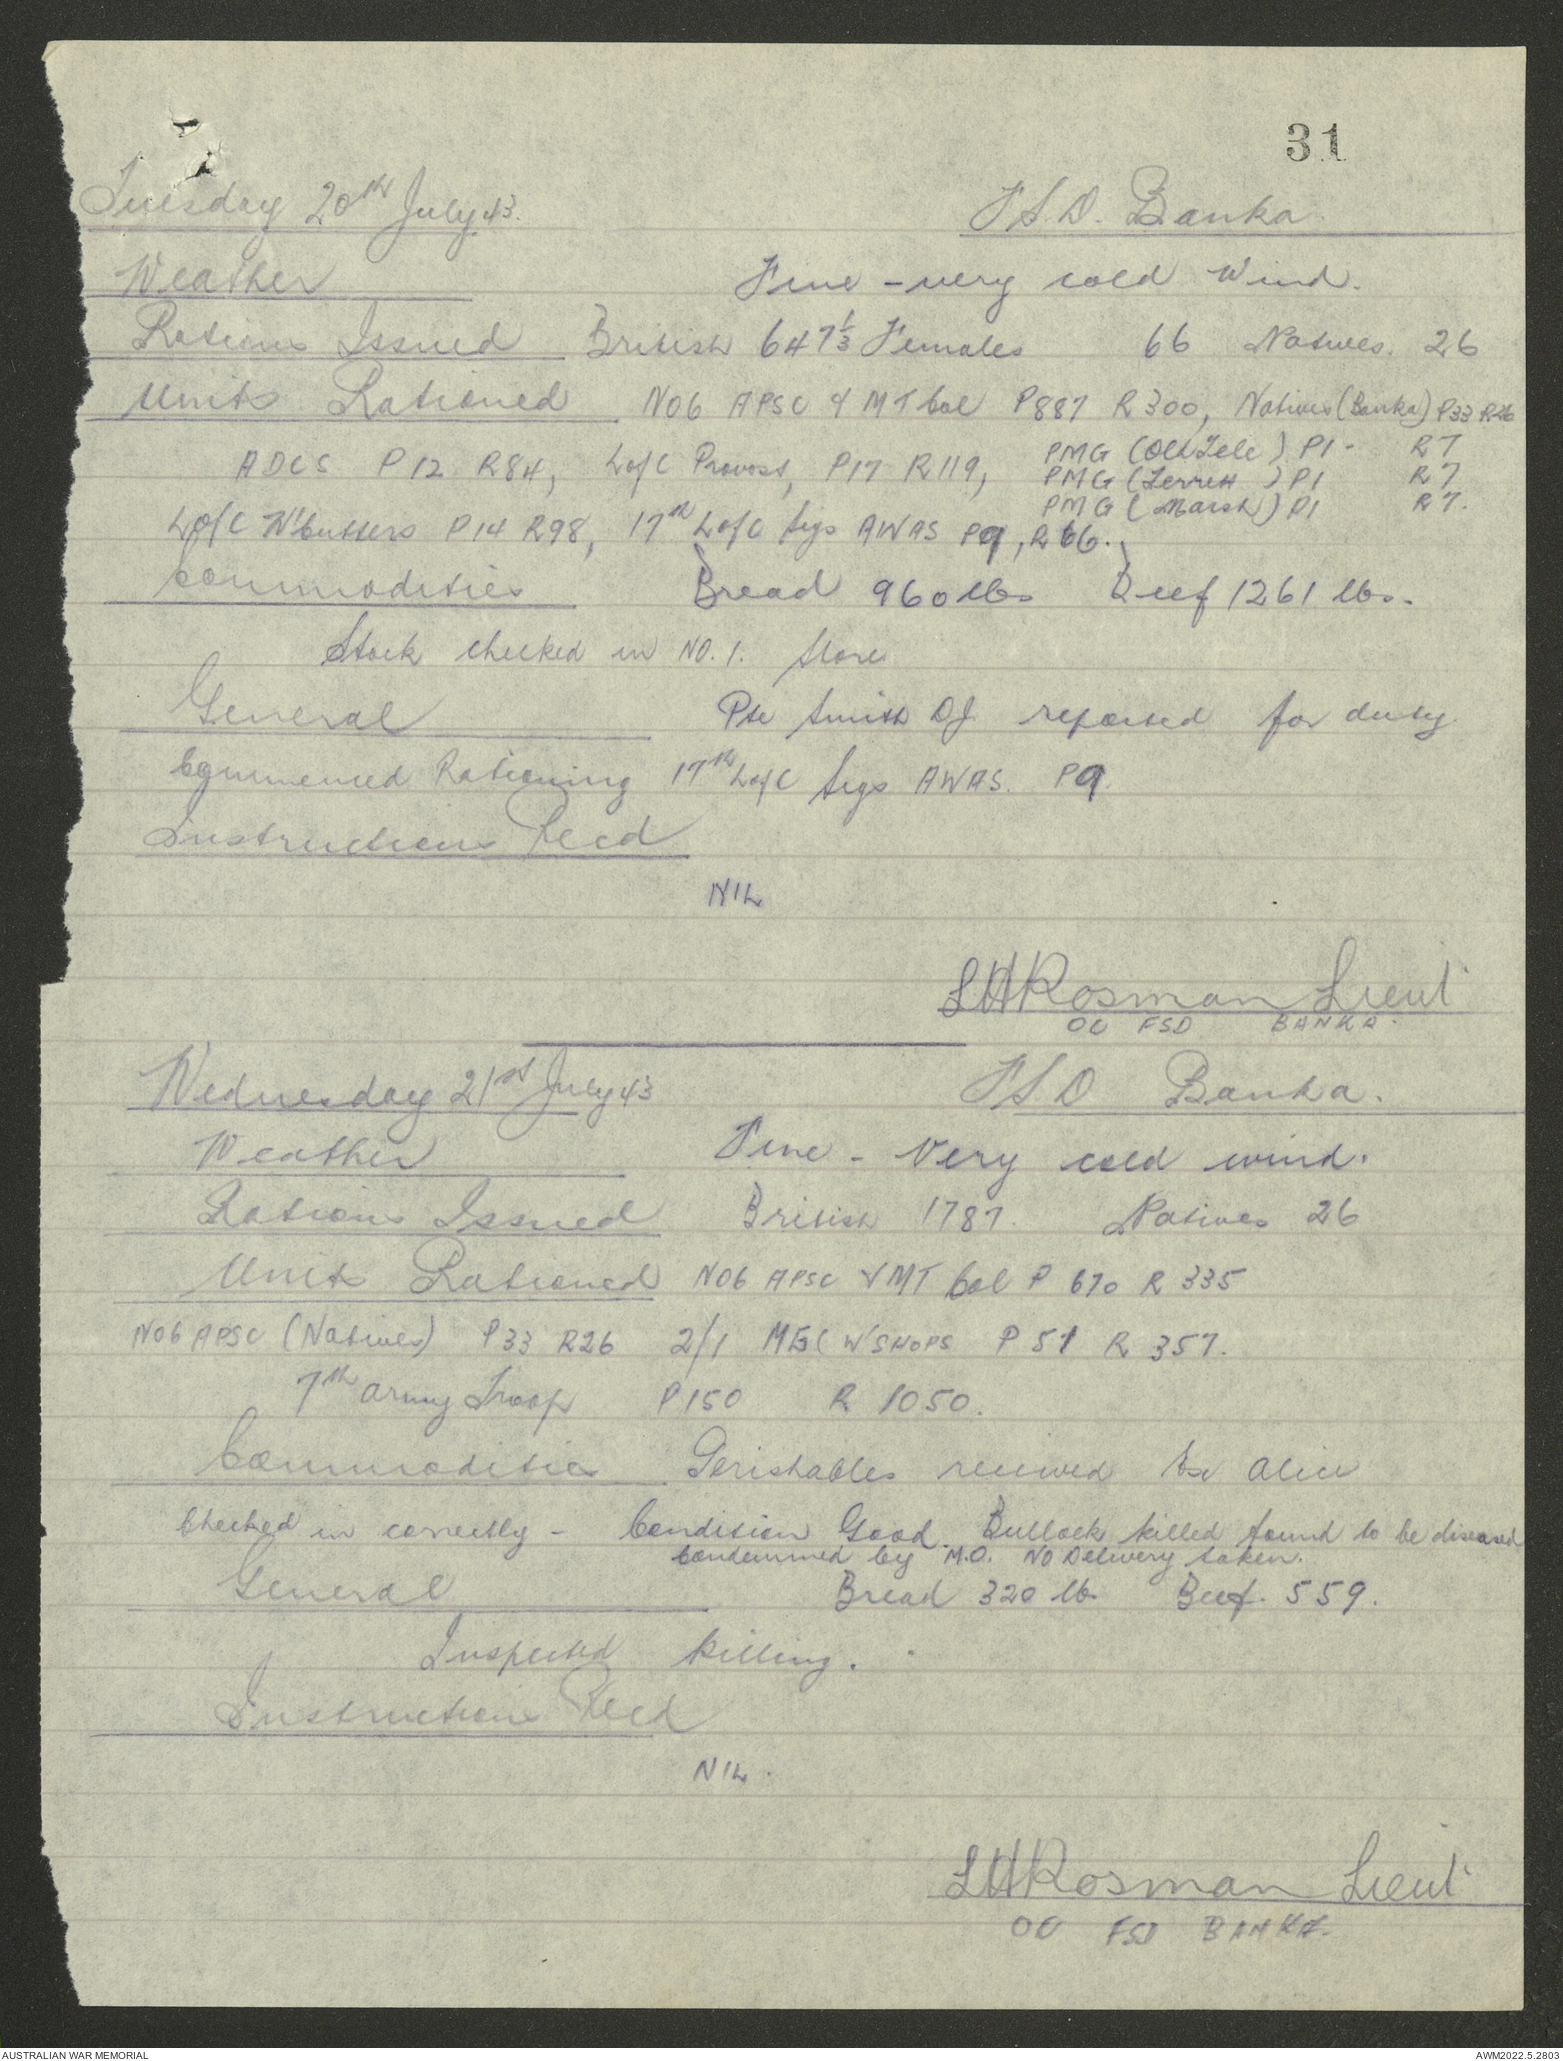 31
Tuesday 20th July 43. F.S.D. Banka
Weather Fine - very cold Wind.
Rations Issued British 647 1/3 Females 66 Natives. 26
Units Rationed NO6 APSC & MT Col P887 R300, Natives (Banka) P33 R26
ADCS P12 R84, L of C Provost, P17 R119, PMG (Old Tele) P1 - R7
PMG ( ) P1 R7
PMG (Marsh) P1 R7.
L of C P14 R98, 17th L of C Sigs AWAS P9, R66.
Commodities Bread 960 lbs Beef 1261 lbs.
Stock checked in NO. 1. Store
General Pte Smith DJ reported for duty
Commenced Rationing 17th L of C Sigs AWAS. P9.
Instructions Recd
NIL
LHRosman Lieut
OC FSD BANKA.
Wednesday 21st July 43 F S D Banka.
Weather Fine - Very cold wind.
Rations Issued British 1787. Natives 26
Units Rationed NO6 APSC & MT Col P 670 R 335
NO6 APSC (Natives) P33 R26 2/1 WSHOPS P 51 R 357.
7th Army Troop P150 R 1050.
Commodities Perishables received Ex Alice
Checked in correctly - Condition Good. Bullock killed found to be diseased
Condemned by M.O. NO Delivery taken.
General Bread 320 lb Beef. 559.
Inspected killing.
Instructions Recd
NIL.
LHRosman Lieut
OC FSD BANKA.
AUSTRALIAN WAR MEMORIAL AWM2022.5.2803